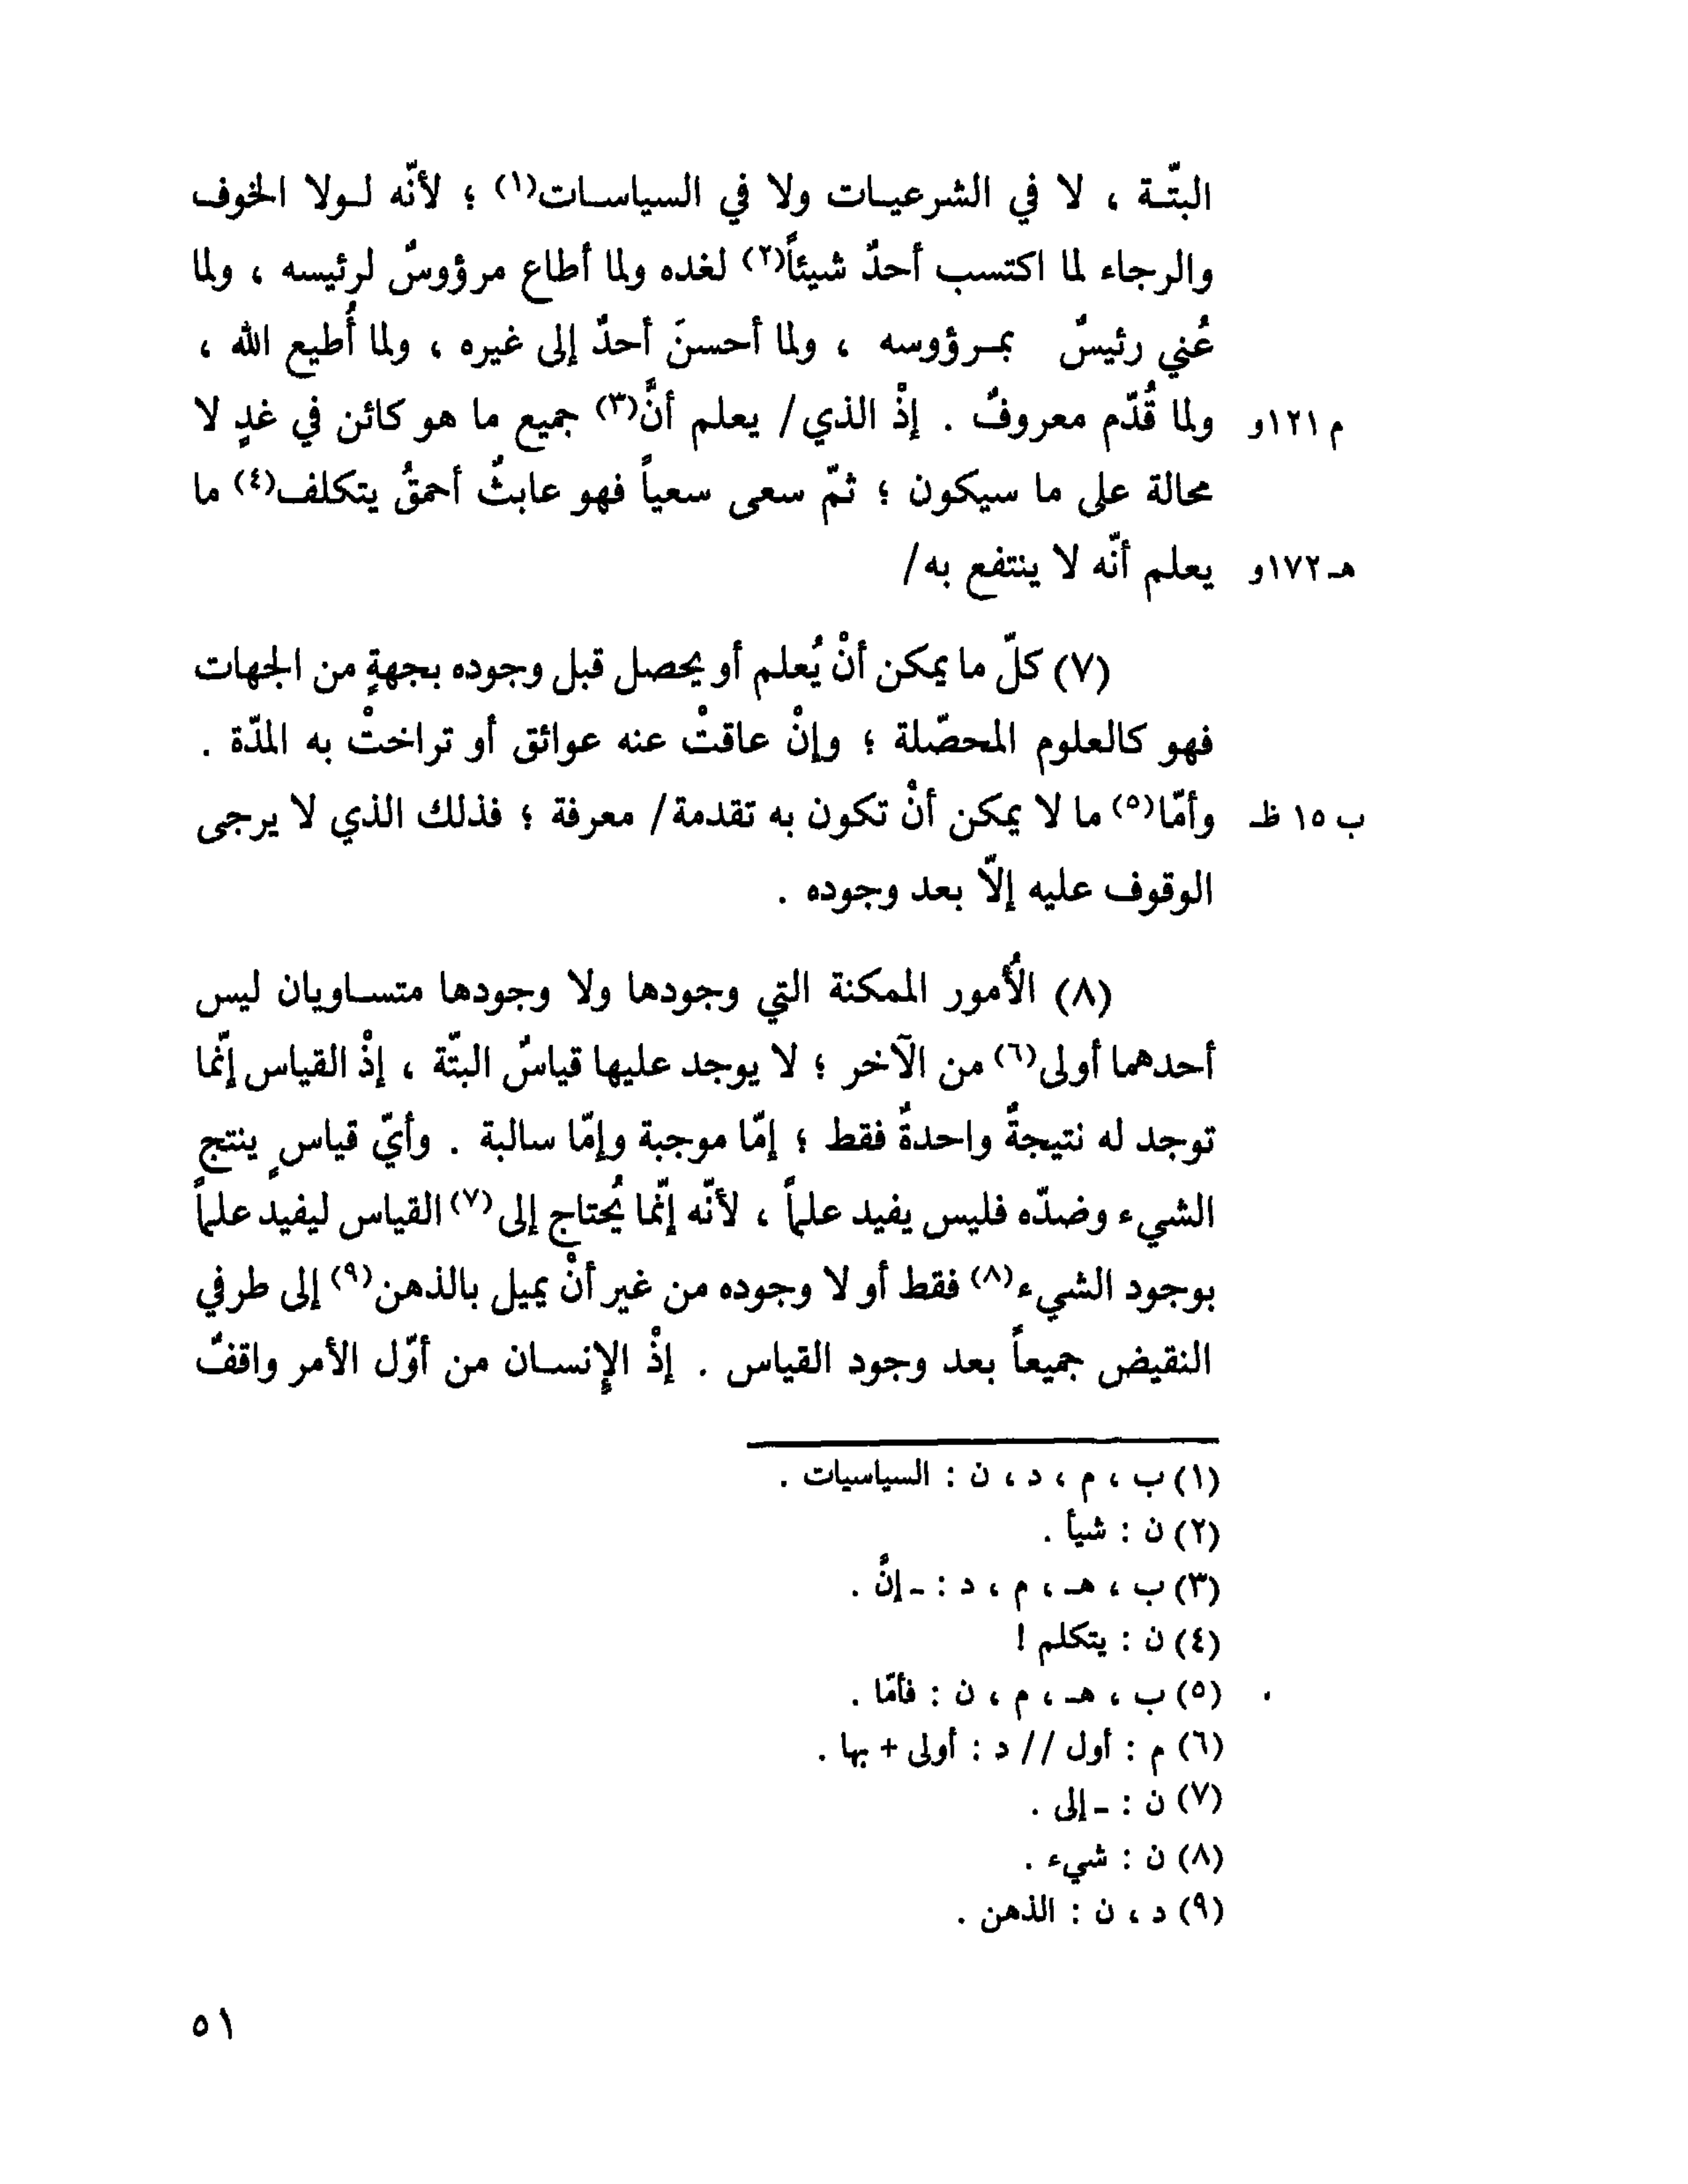 البتّة ، لا في الشرعيات ولا في السياسات(١) ؛ لأنّه لولا الخوف
والرجاء لما اكتسب أحدٌ شيئاً(٢) لغده ولما أطاع مرؤوسٌ لرئيسه ، ولما
عُني رئيسٌ بمرؤوسه ، ولما أحسنَ أحدٌ إلى غيره ، ولما أُطيع الله ،
م ١٢١و ولما قُدّم معروفٌ . إذْ الذي / يعلم أنَّ(٣) جميع ما هو كائن في غدٍ لا
محالة على ما سيكون ؛ ثمّ سعى سعياً فهو عابثٌ أحمقُ يتكلف(٤) ما
هـ ١٧٢و يعلم أنّه لا ينتفع به /
(٧) كلّ ما يمكن أنْ يُعلم أو يحصل قبل وجوده بجهةٍ من الجهات
فهو كالعلوم المحصّلة ؛ وإنْ عاقتْ عنه عوائق أو تراختْ به المدّة .
ب ١٥ ظ وأمّا(٥) ما لا يمكن أنْ تكون به تقدمة / معرفة ؛ فذلك الذي لا يرجى
الوقوف عليه إلاّ بعد وجوده .
(٨) الأُمور الممكنة التي وجودها ولا وجودها متساويان ليس
أحدهما أولى(٦) من الآخر ؛ لا يوجد عليها قياسٌ البتّة ، إذْ القياس إنّما
توجد له نتيجةٌ واحدةٌ فقط ؛ إمّا موجبة وإمّا سالبة . وأيّ قياسٍ ينتج
الشيء وضدّه فليس يفيد علماً ، لأنّه إنّما يُحتاج إلى(٧) القياس ليفيد علماً
بوجود الشيء(٨) فقط أو لا وجوده من غير أنْ يميل بالذهن(٩) إلى طرفي
النقيض جميعاً بعد وجود القياس . إذْ الإنسان من أوّل الأمر واقفٌ
(١) ب ، م ، د ، ن : السياسيات .
(٢) ن : شيأ .
(٣) ب ، هـ ، م ، د : - إنَّ .
(٤) ن : يتكلم !
(٥) ب ، هـ ، م ، ن : فأمّا .
(٦) م : أول // د : أولى + بها .
(٧) ن : - إلى .
(٨) ن : شيء .
(٩) د ، ن : الذهن .
٥١